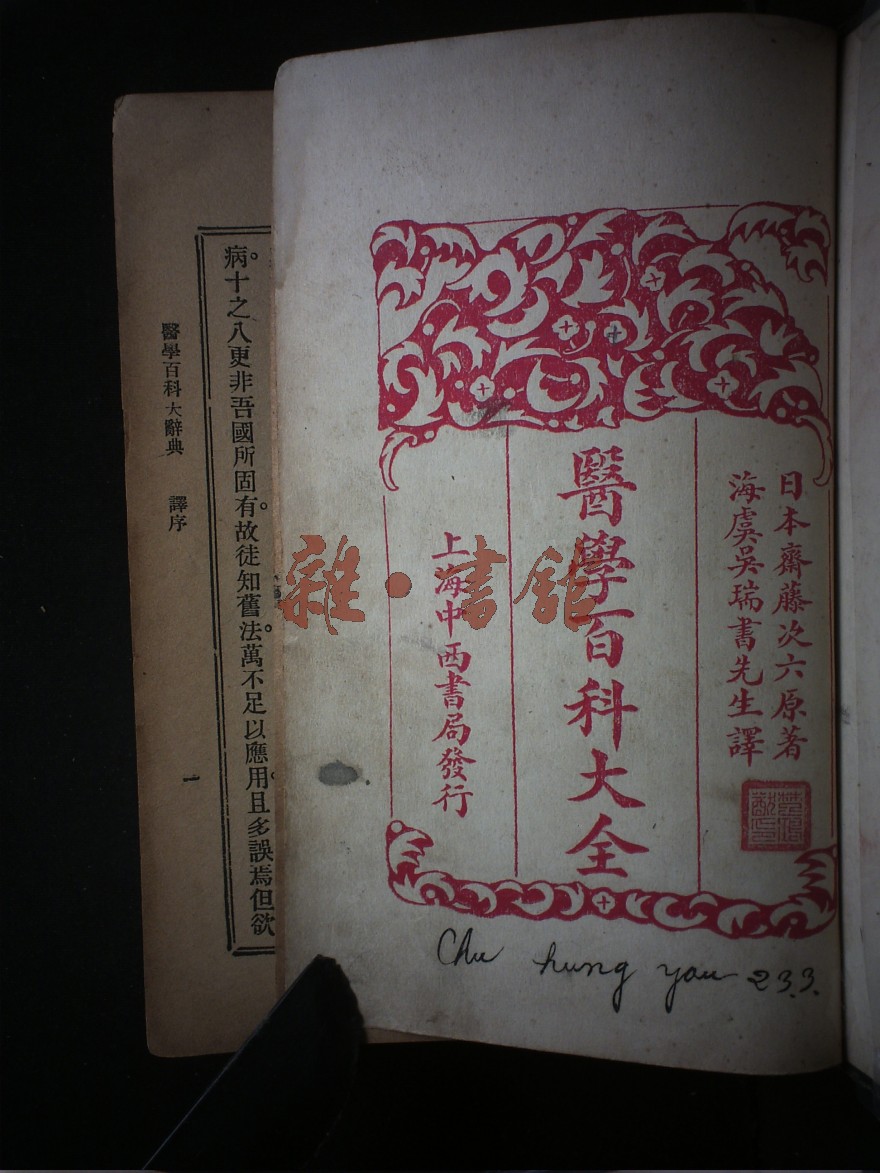 日本齋藤次六原著
海虞吳瑞書先生譯
醫學百科大全
上海中西書局發行
Chu hung yau 23.3.
雜·書館
病。十之八更非吾國所固有。故徒知舊法。萬不足以應用。且多誤焉但欲
醫學百科大辭典 譯序 一